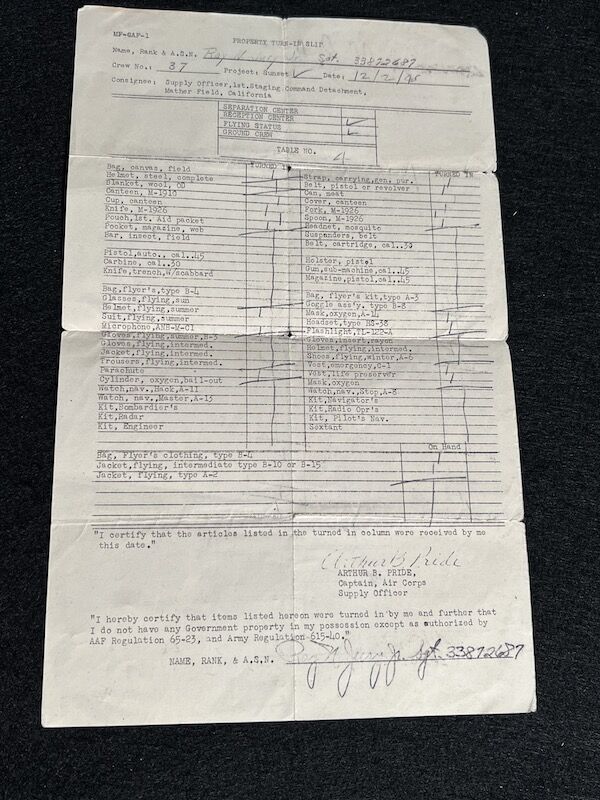 MF-GAF-1
PROPERTY TURN-IN SLIP
Name, Rank & A.S.N. Sgt. 33872687
Crew No.: 37 Project: Sunset Date: 12/2/45
Consignee: Supply Officer,1st.Staging Command Detachment.
Mather Field, California
SEPARATION CENTER
RECEPTION CENTER
FLYING STATUS
GROUND CREW
TABLE NO. 4
TURNED IN
Bag, canvas, field
Helmet, steel, complete
Blanket, wool, OD
Canteen, M-1910
Cup, canteen
Knife, M-1926
Pouch,1st. Aid packet
Pocket, magazine, web
Bar, insect, field
Pistol,auto., cal..45
Carbine, cal..30
Knife,trench,W/scabbard
Bag,flyer's,type B-4
Glasses,flying,sun
Helmet,flying,summer
Suit,flying,summer
Microphone,ANB-M-C1
Gloves,flying,summer,B-3
Gloves,flying,intermed.
Jacket,flying,intermed.
Trousers,flying,intermed.
Parachute
Cylinder, oxygen,bail-out
Watch,nav.,Hack,A-11
Watch, nav.,Master,A-13
Kit,Bombardier's
Kit,Radar
Kit, Engineer
TURNED IN
Strap, carrying,gen. pur.
Belt, pistol or revolver
Can, meat
Cover, canteen
Fork, M-1926
Spoon, M-1926
Headnet, mosquito
Suspenders, belt
Belt, cartridge, cal..30
Holster, pistol
Gun,sub-machine,cal..45
Magazine,pistol,cal..45
Bag, flyer's kit,type A-3
Goggle ass'y, type B-8
Mask,oxygen,A-14
Headset,type HS-38
Flashlight,TL-122-A
Gloves,insert,rayon
Helmet,flying,intermed.
Shoes,flying,winter,A-6
Vest,emergency,C-1
Vest,life preserver
Mask,oxygen
Watch,nav.,Stop,A-8
Kit,Navigator's
Kit,Radio Opr's
Kit, Pilot's Nav.
Sextant
On Hand
Bag, Flyer's clothing, type B-4
Jacket,flying, intermediate type B-10 or B-15
Jacket, flying, type A-2
"I certify that the articles listed in the turned in column were received by me
this date."
Arthur B Pride
ARTHUR B. PRIDE,
Captain, Air Corps
Supply Officer
"I hereby certify that items listed hereon were turned in by me and further that
I do not have any Government property in my possession except as authorized by
AAF Regulation 65-23, and Army Regulation 615-40."
NAME, RANK, & A.S.N. Jr. Sgt. 33872687